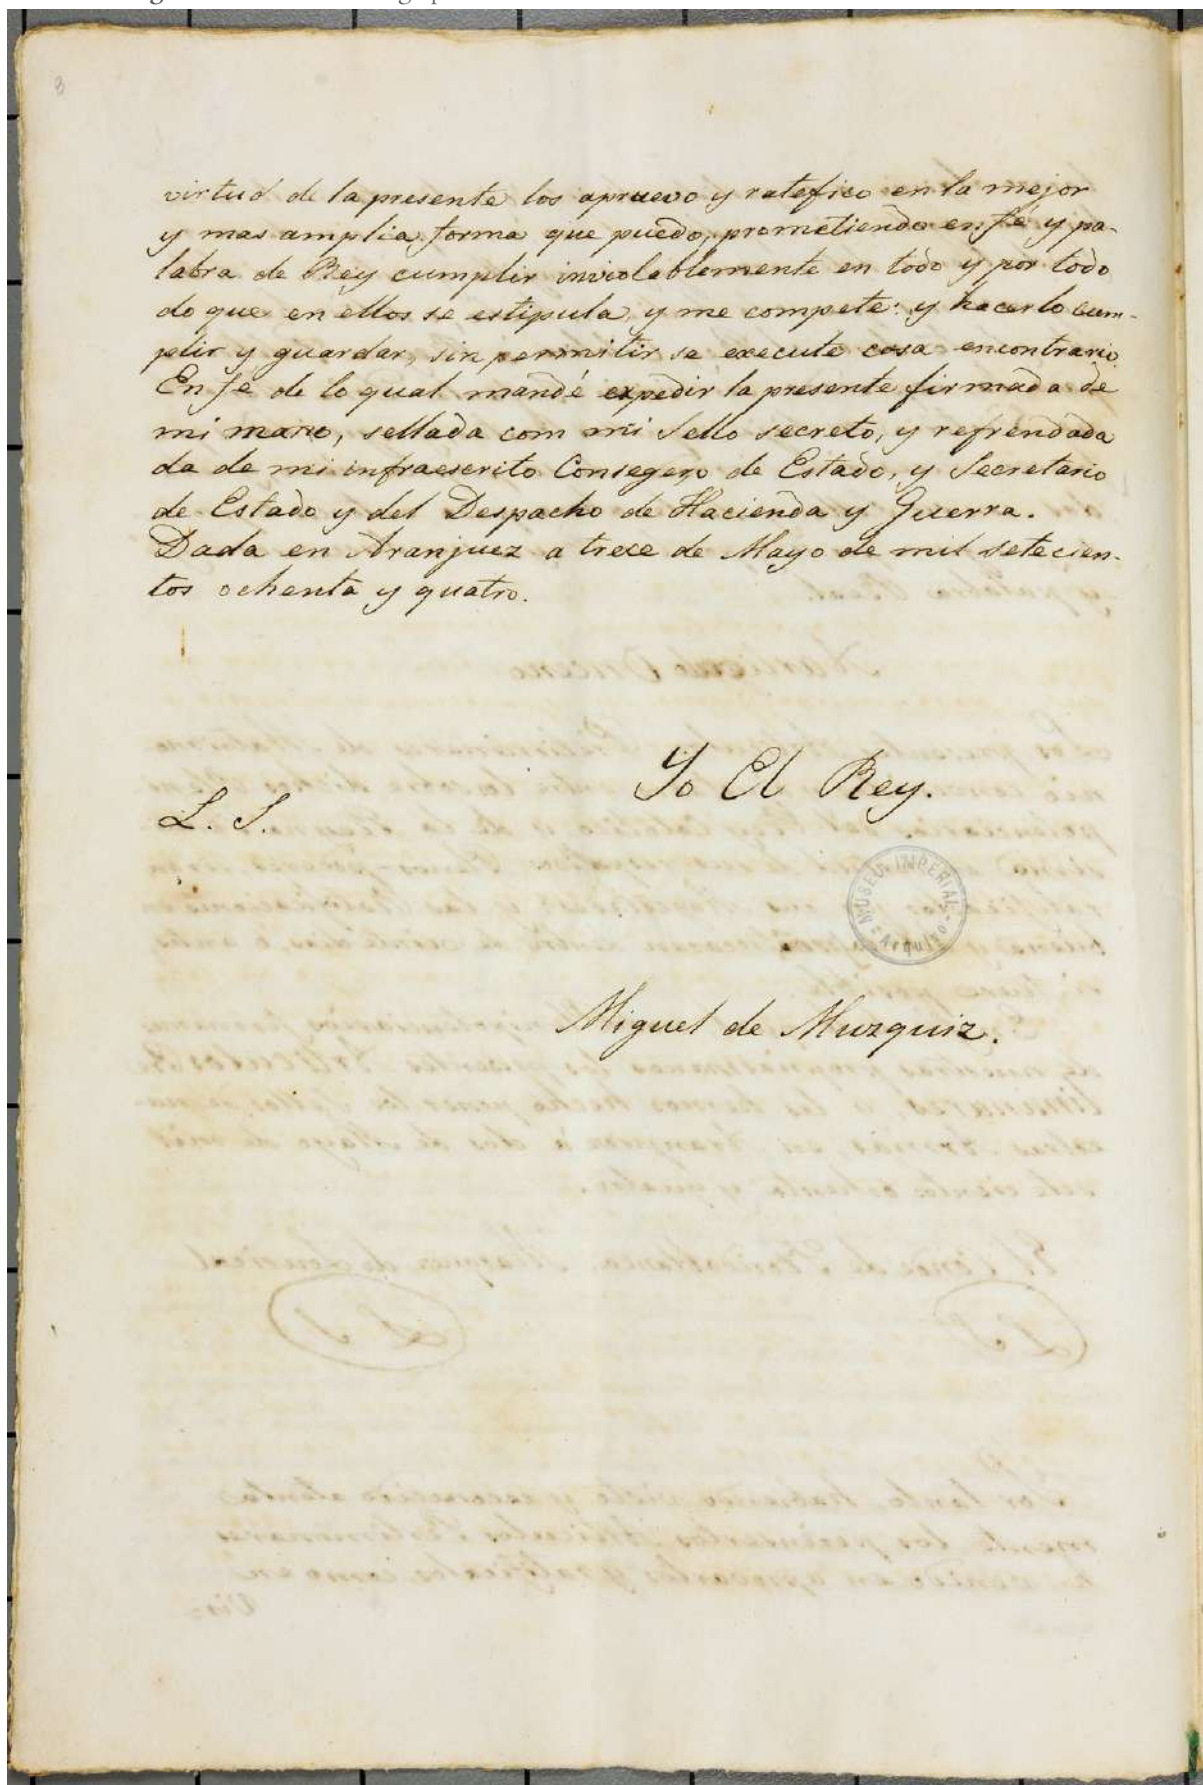 8
virtud de la presente los apruevo y ratefico en la mejor
y mas amplia forma que puedo, prometiendo en fe y pa-
labra de Rey cumplir inviolablemente en todo y por todo
do que en ellos se estipula, y me compete: y hacerlo cum-
plir y guardar, sin permitir se execute cosa encontrario.
En fe de lo qual mandé expedir la presente firmada de
mi mano, sellada com mi Sello secreto, y refrendada
da de mi infraescrito Consegero de Estado, y Secretario
de Estado y del Despacho de Hacienda y Guerra.
Dada en Aranjuez a trece de Mayo de mil setecien-
tos ochenta y quatro.
Yo El Rey.
L. S.
MUSEU IMPERIAL
Arquivo
Miguel de Muzquiz.